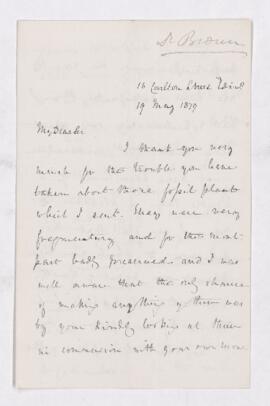 16 Carlton Street Edinr
19 May 1879
My dear Sir
I thank you very
much for the trouble you have
taken about those fossil plants
which I sent. They were very
fragmentary and for the most
part badly preserved and I was
well aware that the only chance
of making anything of them was
by your kindly looking at them
in connexion with your own more